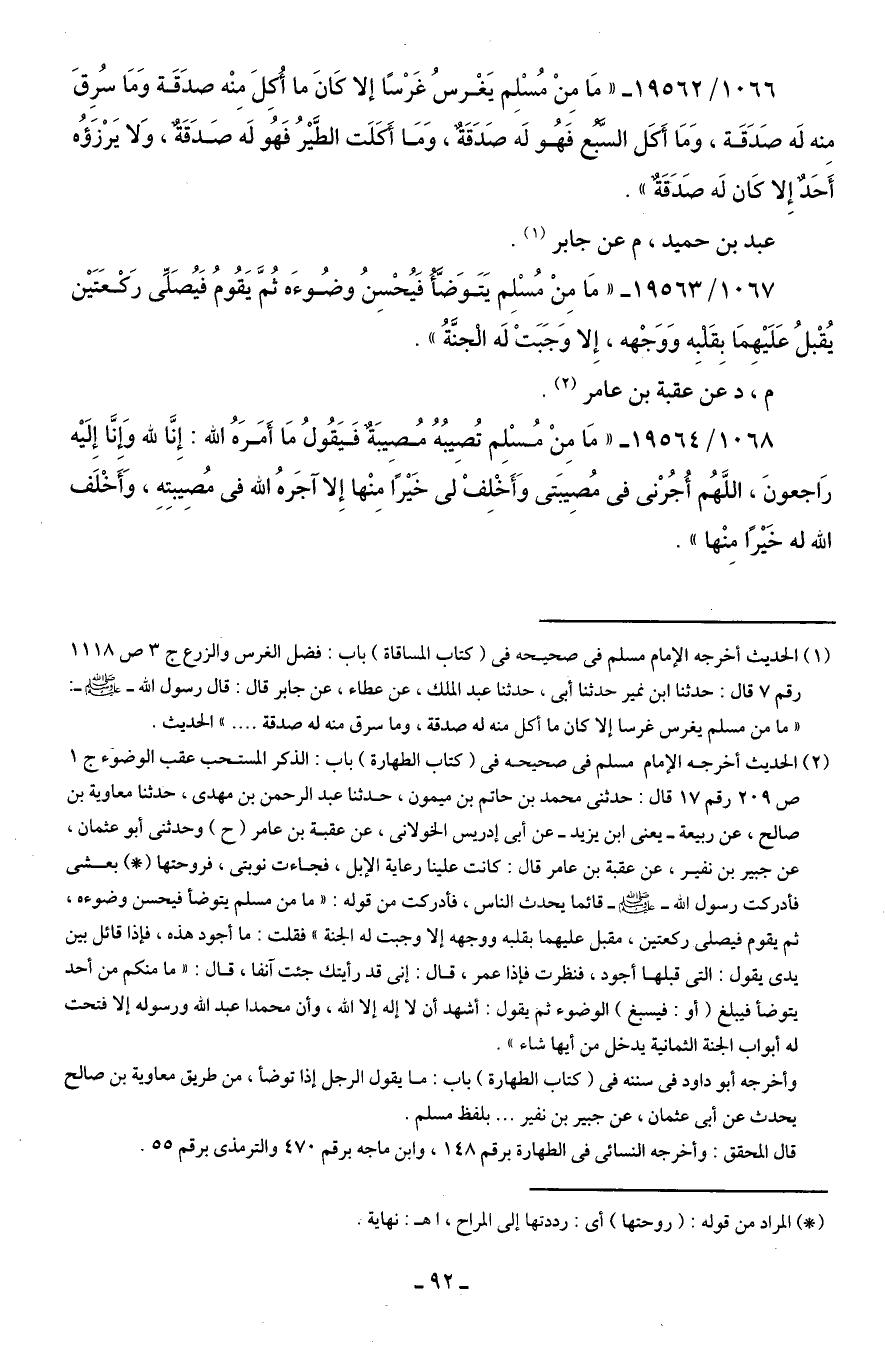 ١٠٦٦/ ١٩٥٦٢ـ « مَا مِنْ مُسْلِم يَغْرِسُ غَرْسًا إلا كَانَ ما أُكِلَ مِنْه صدَقَة وَمَا سُرِقَ
مِنه لَه صَدَقَة ، وَمَا أكَل السَّبُع فَهُو لَه صَدَقَةٌ ، وَمَا أكَلَت الطَّيْرُ فَهُو لَه صَدَقَةٌ ، وَلَا يَرْزَؤُه
أَحَدٌ إِلا كَان لَه صَدَقَةٌ » .
عبد بن حميد ، م عن جابر (١) .
١٠٦٧/ ١٩٥٦٣ـ « مَا مِنْ مُسْلِم يَتَوَضَّأُ فَيُحْسِنُ وضُوءَه ثُمَّ يَقُومُ فَيُصَلِّى رَكْعَتَيْنِ
يُقْبِلُ عَلَيْهِمَا بِقَلْبِه وَوَجْهِه ، إِلا وَجَبَتْ لَه الْجنَّةُ » .
م ، د عن عقبة بن عامر (٢) .
١٠٦٨/ ١٩٥٦٤ـ « مَا مِنْ مُسْلِم تُصِيبُهُ مُصِيبَةٌ فَيَقُولُ مَا أَمَرَهُ الله : إِنَّا لله وَإِنَّا إِلَيْه
رَاجِعونَ ، اللَّهُم أُجُرْنِى فى مُصِيبَتِى وَأَخْلِفْ لى خَيْرًا مِنْها إلا آجَرهُ الله فى مُصِيبتِه ، وَأَخْلَف
الله له خَيْرًا مِنْها » .
(١) الحديث أخرجه الإمام مسلم فى صحيحه فى ( كتاب المساقاة ) باب : فضل الغرس والزرع ج ٣ ص ١١١٨
رقم ٧ قال : حدثنا ابن نمير حدثنا أبى ، حدثنا عبد الملك ، عن عطاء ، عن جابر قال : قال رسول الله ـ ﷺ ـ:
« ما من مسلم يغرس غرسا إلا كان ما أكل منه له صدقة ، وما سرق منه له صدقة .... » الحديث .
(٢) الحديث أخرجه الإمام مسلم فى صحيحه فى ( كتاب الطهارة ) باب : الذكر المستحب عقب الوضوء ج ١
ص ٢٠٩ رقم ١٧ قال : حدثنى محمد بن حاتم بن ميمون ، حدثنا عبد الرحمن بن مهدى ، حدثنا معاوية بن
صالح ، عن ربيعة ـ يعنى ابن يزيد ـ عن أبى إدريس الخولانى ، عن عقبة بن عامر ( ح ) وحدثنى أبو عثمان ،
عن جبير بن نفير ، عن عقبة بن عامر قال : كانت علينا رعاية الإبل ، فجاءت نوبتى ، فروحتها (*) بعشى
فأدركت رسول الله ـ ﷺ ـ قائما يحدث الناس ، فأدركت من قوله : « ما من مسلم يتوضأ فيحسن وضوءه ،
ثم يقوم فيصلى ركعتين ، مقبل عليهما بقلبه ووجهه إلا وجبت له الجنة » فقلت : ما أجود هذه ، فإذا قائل بين
يدى يقول : التى قبلها أجود ، فنظرت فإذا عمر ، قال : إنى قد رأيتك جئت آنفا ، قال : « ما منكم من أحد
يتوضأ فيبلغ ( أو : فيسبغ ) الوضوء ثم يقول : أشهد أن لا إله إلا الله ، وأن محمدا عبد الله ورسوله إلا فتحت
له أبواب الجنة الثمانية يدخل من أيها شاء » .
وأخرجه أبو داود فى سننه فى ( كتاب الطهارة ) باب : ما يقول الرجل إذا توضأ ، من طريق معاوية بن صالح
يحدث عن أبى عثمان ، عن جبير بن نفير ... بلفظ مسلم .
قال المحقق : وأخرجه النسائى فى الطهارة برقم ١٤٨ ، وابن ماجه برقم ٤٧٠ والترمذى برقم ٥٥ .
(*) المراد من قوله : ( روحتها ) أى : رددتها إلى المراح ، ا هـ : نهاية .
ـ ٩٢ ـ